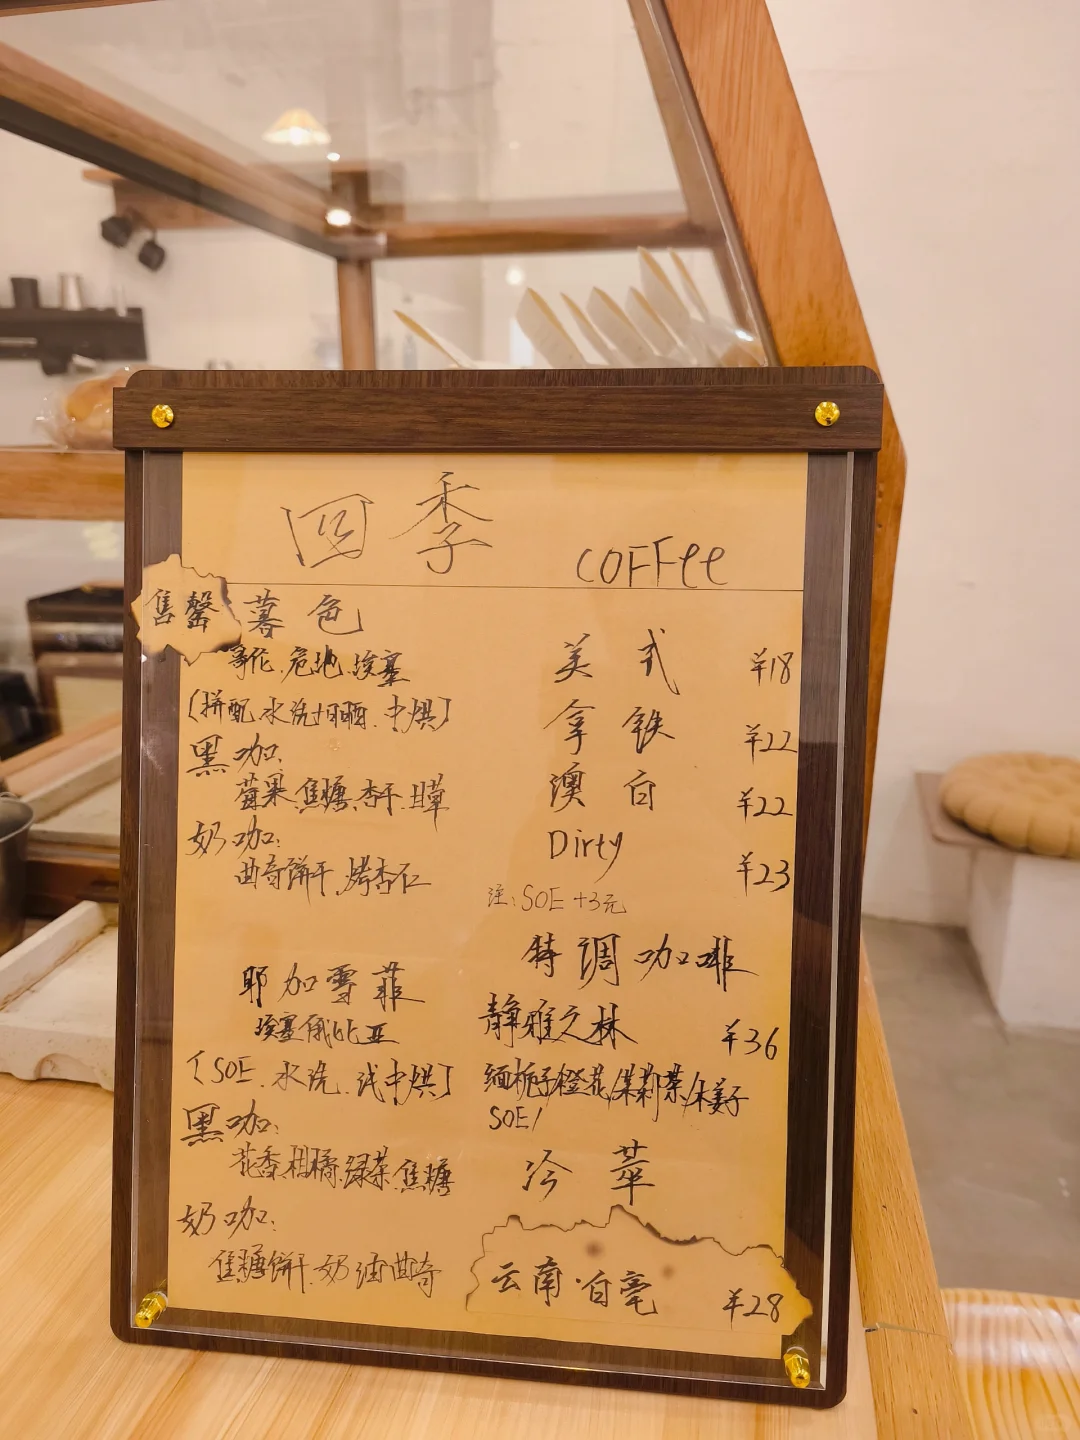 四季 COFFee
售罄 暮色
哥伦.危地.埃塞
(拼配.水洗+日晒.中烘)
黑咖:
莓果.焦糖.杏干.甘草
奶咖:
曲奇饼干.烤杏仁
耶加雪菲
埃塞俄比亚
(SOE.水洗.浅中烘)
黑咖:
花香.柑橘.绿茶.焦糖
奶咖:
焦糖饼干.奶油曲奇
美式 ¥18
拿铁 ¥22
澳白 ¥22
Dirty ¥23
注:SOE +3元
特调咖啡
静雅之林 ¥36
缅栀子/橙花/茉莉茶/木姜子
SOE/
冷萃
云南·白毫 ¥28